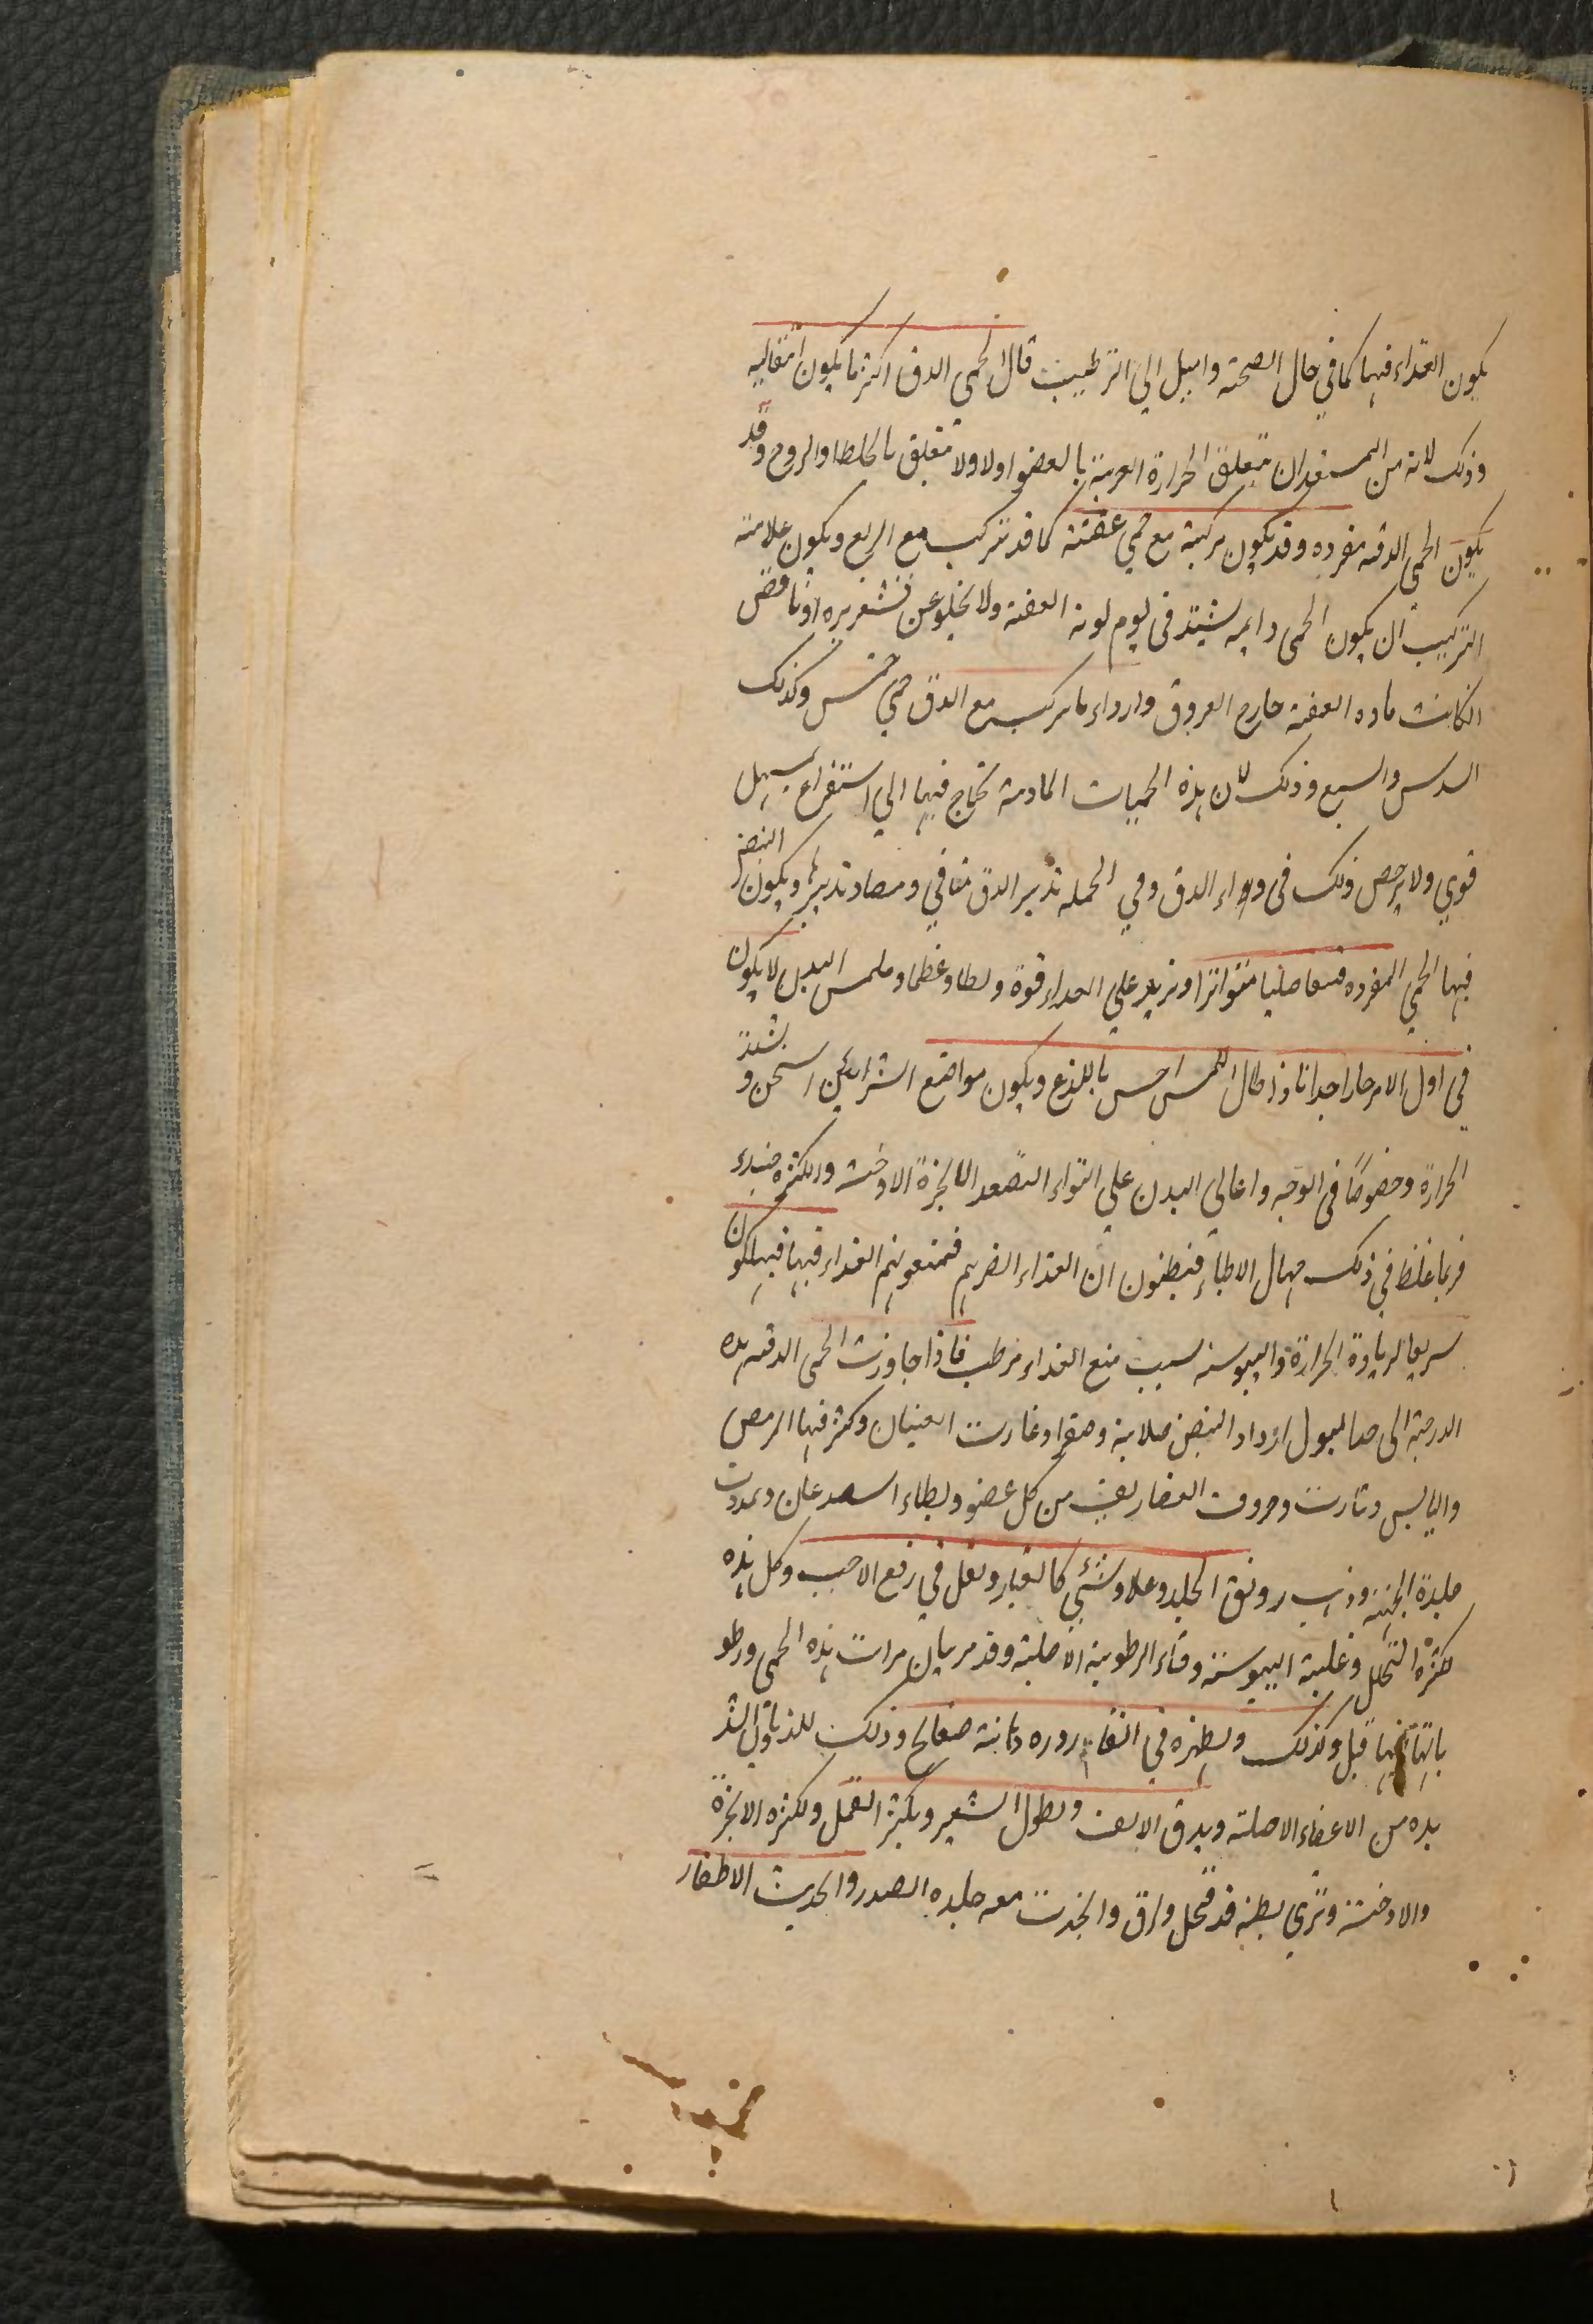 يكون الغذاء فيها كما في حال الصحة واميل الي الترطيب قال الحمى الدق اكثر ما يكون انتقاليه
وذلك لانه من المستبعد ان تتعلق الحرارة الغريبة بالعضو اولا ولا تتعلق بالخلط والروح وقد
يكون الحمى الدقيه مفرده وقد يكون مركبة مع حمي عفنة كما قد تتركب مع الربع ويكون علامة
التركيب ان يكون الحمى دايمه يشتد في يوم نوبة العفنة ولا يخلو عن قشعريره او نافض
انكانت ماده العفنة خارج العروق واردء ما يركب مع الدق حمي خمس وكذلك
السدس والسبع وذلك لان هذه الحميات المادية تحتاج فيها الي استفراغ بمسهل
قوي ولا يرخص ذلك في دواء الدق وفي الجمله تدبير الدق منافي ومضاد تدبيرها ويكون النبض
فيها الحمي المفرده متواترا ويزيد علي الغداء قوة وبطا وعظما وملمس البدن لا يكون
في اول الامر حارا جدا فاذا طال اللمس احس باللذع ويكون مواضع الشرائين اسخن و بشدة
الحرارة وخصوصًا في الوجه واعالي البدن علي التواء التصعد الابخرة الادخنة والكثرة
فربما غلظ في ذلك جهال الاطباء فيظنون ان الغذاء اضر بهم فمنعونهم الغداء فيها فيهلكون
سريعا لزيادة الحرارة واليبوسة بسبب منع الغداء مرطب فاذا جاوزت الحمى الدقيه هذه
الدرجة الى الذبول ازداد النبض صلابة وصغرا وغارت العينان وكثر فيها الرمص
واليابس ونتارت وحروف الغضاريف من كل عضو ولطاء الصدغان وتمددت
جلدة الجبهة وذهب رونق الجلد وعلاه شئي كالغبار وثقل في رفع الحاجب وكل هذه
لكثرة التحلل وغلبة اليبوسة وفناء الرطوبة الاصلية وقد مر بيان مراتب هذه الحمى ورطو
باتها فيها قبل وكذلك ويظهر في القاروره دهانة صفايح وذلك للذوبان الذ
بده من الاعضاء الاصلية ويدق الانف ويطول الشعر ويكثر القمل ولكثره الابخرة
والادخنة وتري بطنه قد قحل ولزق وانجذب معه جلده الصدر وانحدبت الاظفار